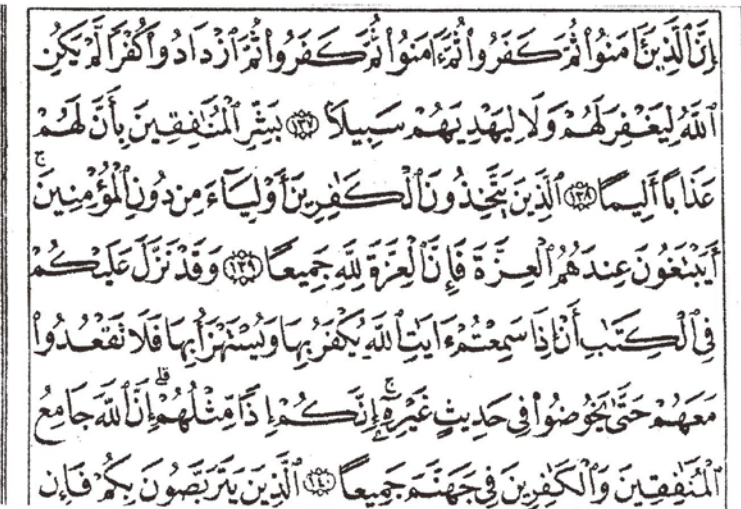 إِنَّ ٱلَّذِينَ ءَامَنُوا۟ ثُمَّ كَفَرُوا۟ ثُمَّ ءَامَنُوا۟ ثُمَّ كَفَرُوا۟ ثُمَّ ٱزْدَادُوا۟ كُفْرًا لَّمْ يَكُنِ
ٱللَّهُ لِيَغْفِرَ لَهُمْ وَلَا لِيَهْدِيَهُمْ سَبِيلًا ١٣٧ بَشِّرِ ٱلْمُنَٰفِقِينَ بِأَنَّ لَهُمْ
عَذَابًا أَلِيمًا ١٣٨ ٱلَّذِينَ يَتَّخِذُونَ ٱلْكَٰفِرِينَ أَوْلِيَآءَ مِن دُونِ ٱلْمُؤْمِنِينَ ۚ
أَيَبْتَغُونَ عِندَهُمُ ٱلْعِزَّةَ فَإِنَّ ٱلْعِزَّةَ لِلَّهِ جَمِيعًا ١٣٩ وَقَدْ نَزَّلَ عَلَيْكُمْ
فِى ٱلْكِتَٰبِ أَنْ إِذَا سَمِعْتُمْ ءَايَٰتِ ٱللَّهِ يُكْفَرُ بِهَا وَيُسْتَهْزَأُ بِهَا فَلَا تَقْعُدُوا۟
مَعَهُمْ حَتَّىٰ يَخُوضُوا۟ فِى حَدِيثٍ غَيْرِهِۦٓ ۚ إِنَّكُمْ إِذًا مِّثْلُهُمْ ۗ إِنَّ ٱللَّهَ جَامِعُ
ٱلْمُنَٰفِقِينَ وَٱلْكَٰفِرِينَ فِى جَهَنَّمَ جَمِيعًا ١٤٠ ٱلَّذِينَ يَتَرَبَّصُونَ بِكُمْ فَإِن